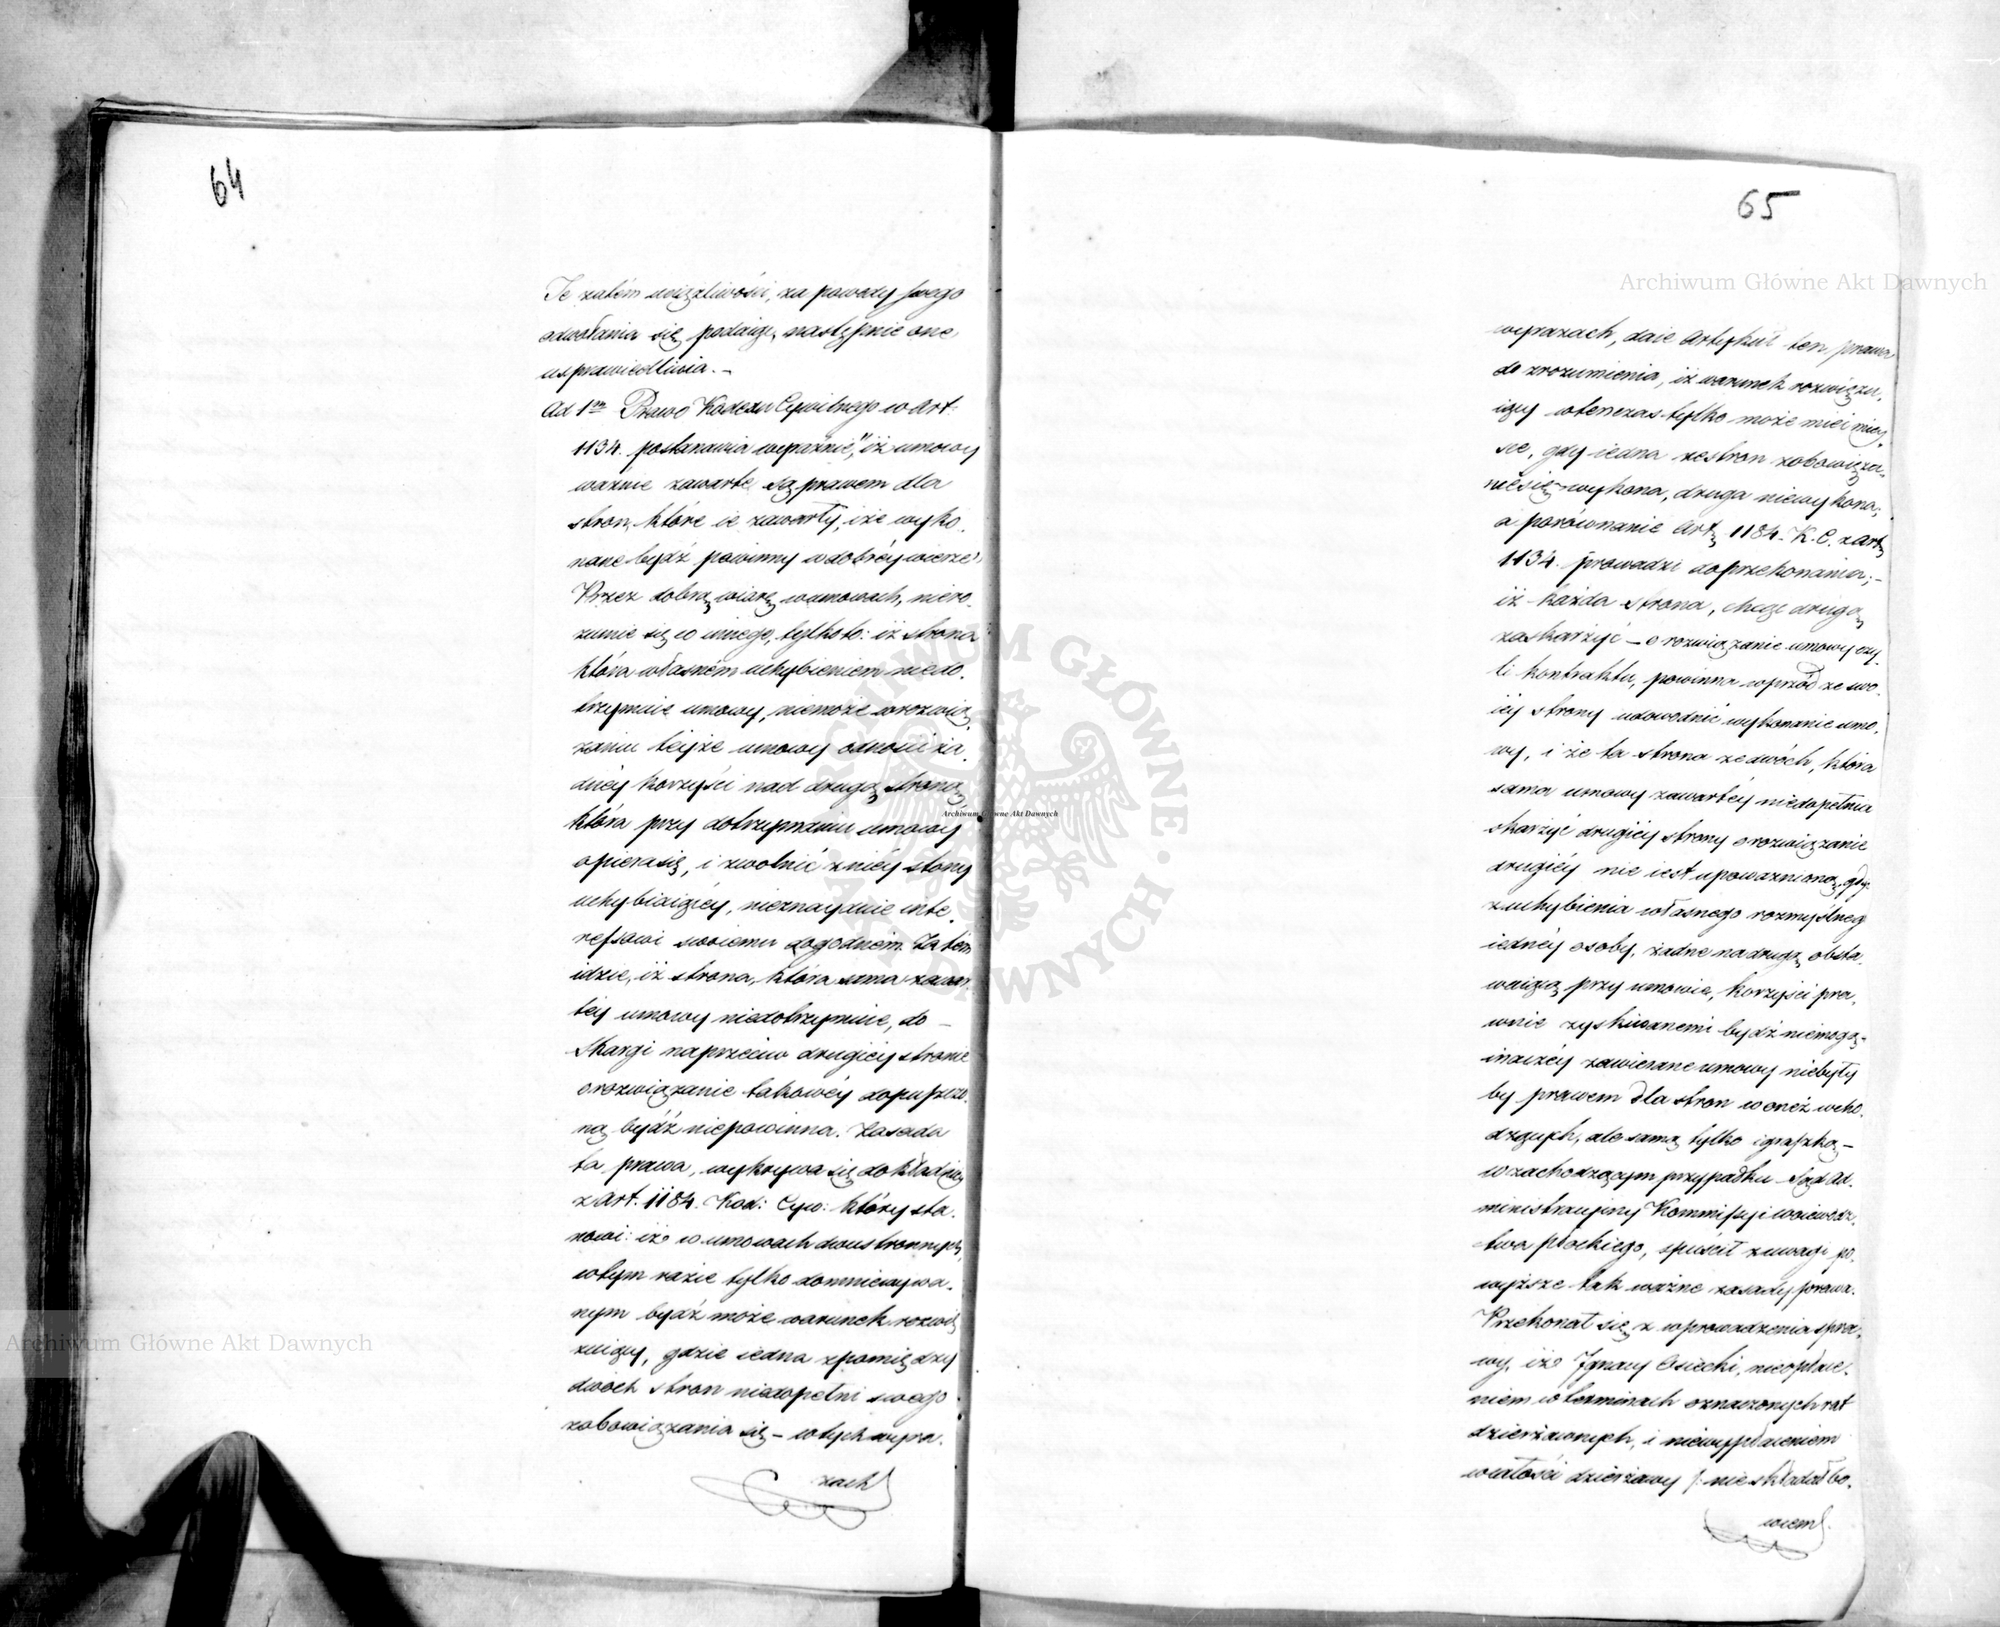 64
Te zatém uciążliwości, za powody swego
odwołania się podaiąc, następnie one
usprawiedliwia. –
Ad 1m Prawo Kodexu Cywilnego w Art:
1134. postanawia wyraźnie, "iż umowy
ważnie zawarte są prawem dla
stron, które ie zawarły, i że wyko.
nane bydź powinny w dobréy wierze"
Przez dobrą wiarę w umowach, niero.
zumie się co innego, tylko to: iż strona
która własném uchybieniem niedo.
trzymuie umowy, niemoże w rozwią
zaniu teyże umowy odnosić ża.
dnéy korzyści nad drugą stroną
która przy dotrzymaniu umowy
opiera się, i zwolnić z niéy strony
uchybiaiącéy, nieznayduie inte.
ressowi swoiemu dogodném. Zatém
idzie, iż strona, która sama zawar.
téy umowy niedotrzymuie, do –
Skargi naprzeciw drugiéy stronie
o rozwiązanie takowéy dopuszczo.
ną bydź niepowinna. Zasada
ta prawa, wykrywa się dokładniéy
z Art. 1184. Kod: Cyw: który sta.
nowi: iż w umowach dwustronnych,
w tym razie tylko domniemywa.
nym bydź może warunek rozwią
zuiący, gdzie iedna z pomiędzy
dwóch stron niedopełni swego
zobowiązania się – w tych wyra.
zach
65
wyrazach, daie Artykuł ten prawa
do zrozumienia, iż warunek rozwiązu.
iący wtenczas tylko może mieć miey.
sce, gdy iedna ze stron zobowiąza.
nie się wykona, druga niewykona;
a porównanie Art. 1184. K. C. z Art.
1134. prowadzi do przekonania; –
iż każda strona, chcąc drugą
zaskarżyć – o rozwiązanie umowy czy.
li kontraktu, powinna wprzód ze swo.
iéy strony udowodnić wykonanie umo.
wy, i że ta strona ze dwóch, która
sama umowy zawartéy niedopełnia
skarżyć drugiéy strony o rozwiązanie
drugiéy nie iest upoważnioną, gdy
z uchybienia własnego rozmyślnego
iednéy osoby, żadne na drugą obsta.
waiącą przy umowie, korzyści pra.
wnie zyskiwanemi bydź niemogą –
inaczéy zawierane umowy niebyły
by prawem dla stron w onéż wcho.
dzących, ale samą tylko igraszką –
w zachodzącym przypadku Sąd Ad.
ministracyiny Kommissyi woiewódz.
twa płockiego, spuścił z uwagi po.
wyższe tak ważne zasady prawa.
Przekonał się z wprowadzenia spra.
wy, iż Ignacy Osiecki, nieopłace.
niem w terminach oznaczonych rat
dzierżawnych, i niewypłaceniem
w całości dzierżawy /: nie składał bo.
wiem
Archiwum Główne Akt Dawnych
Archiwum Główne Akt Dawnych
Archiwum Główne Akt Dawnych
ARCHIWUM GŁÓWNE · AKT DAWNYCH ·